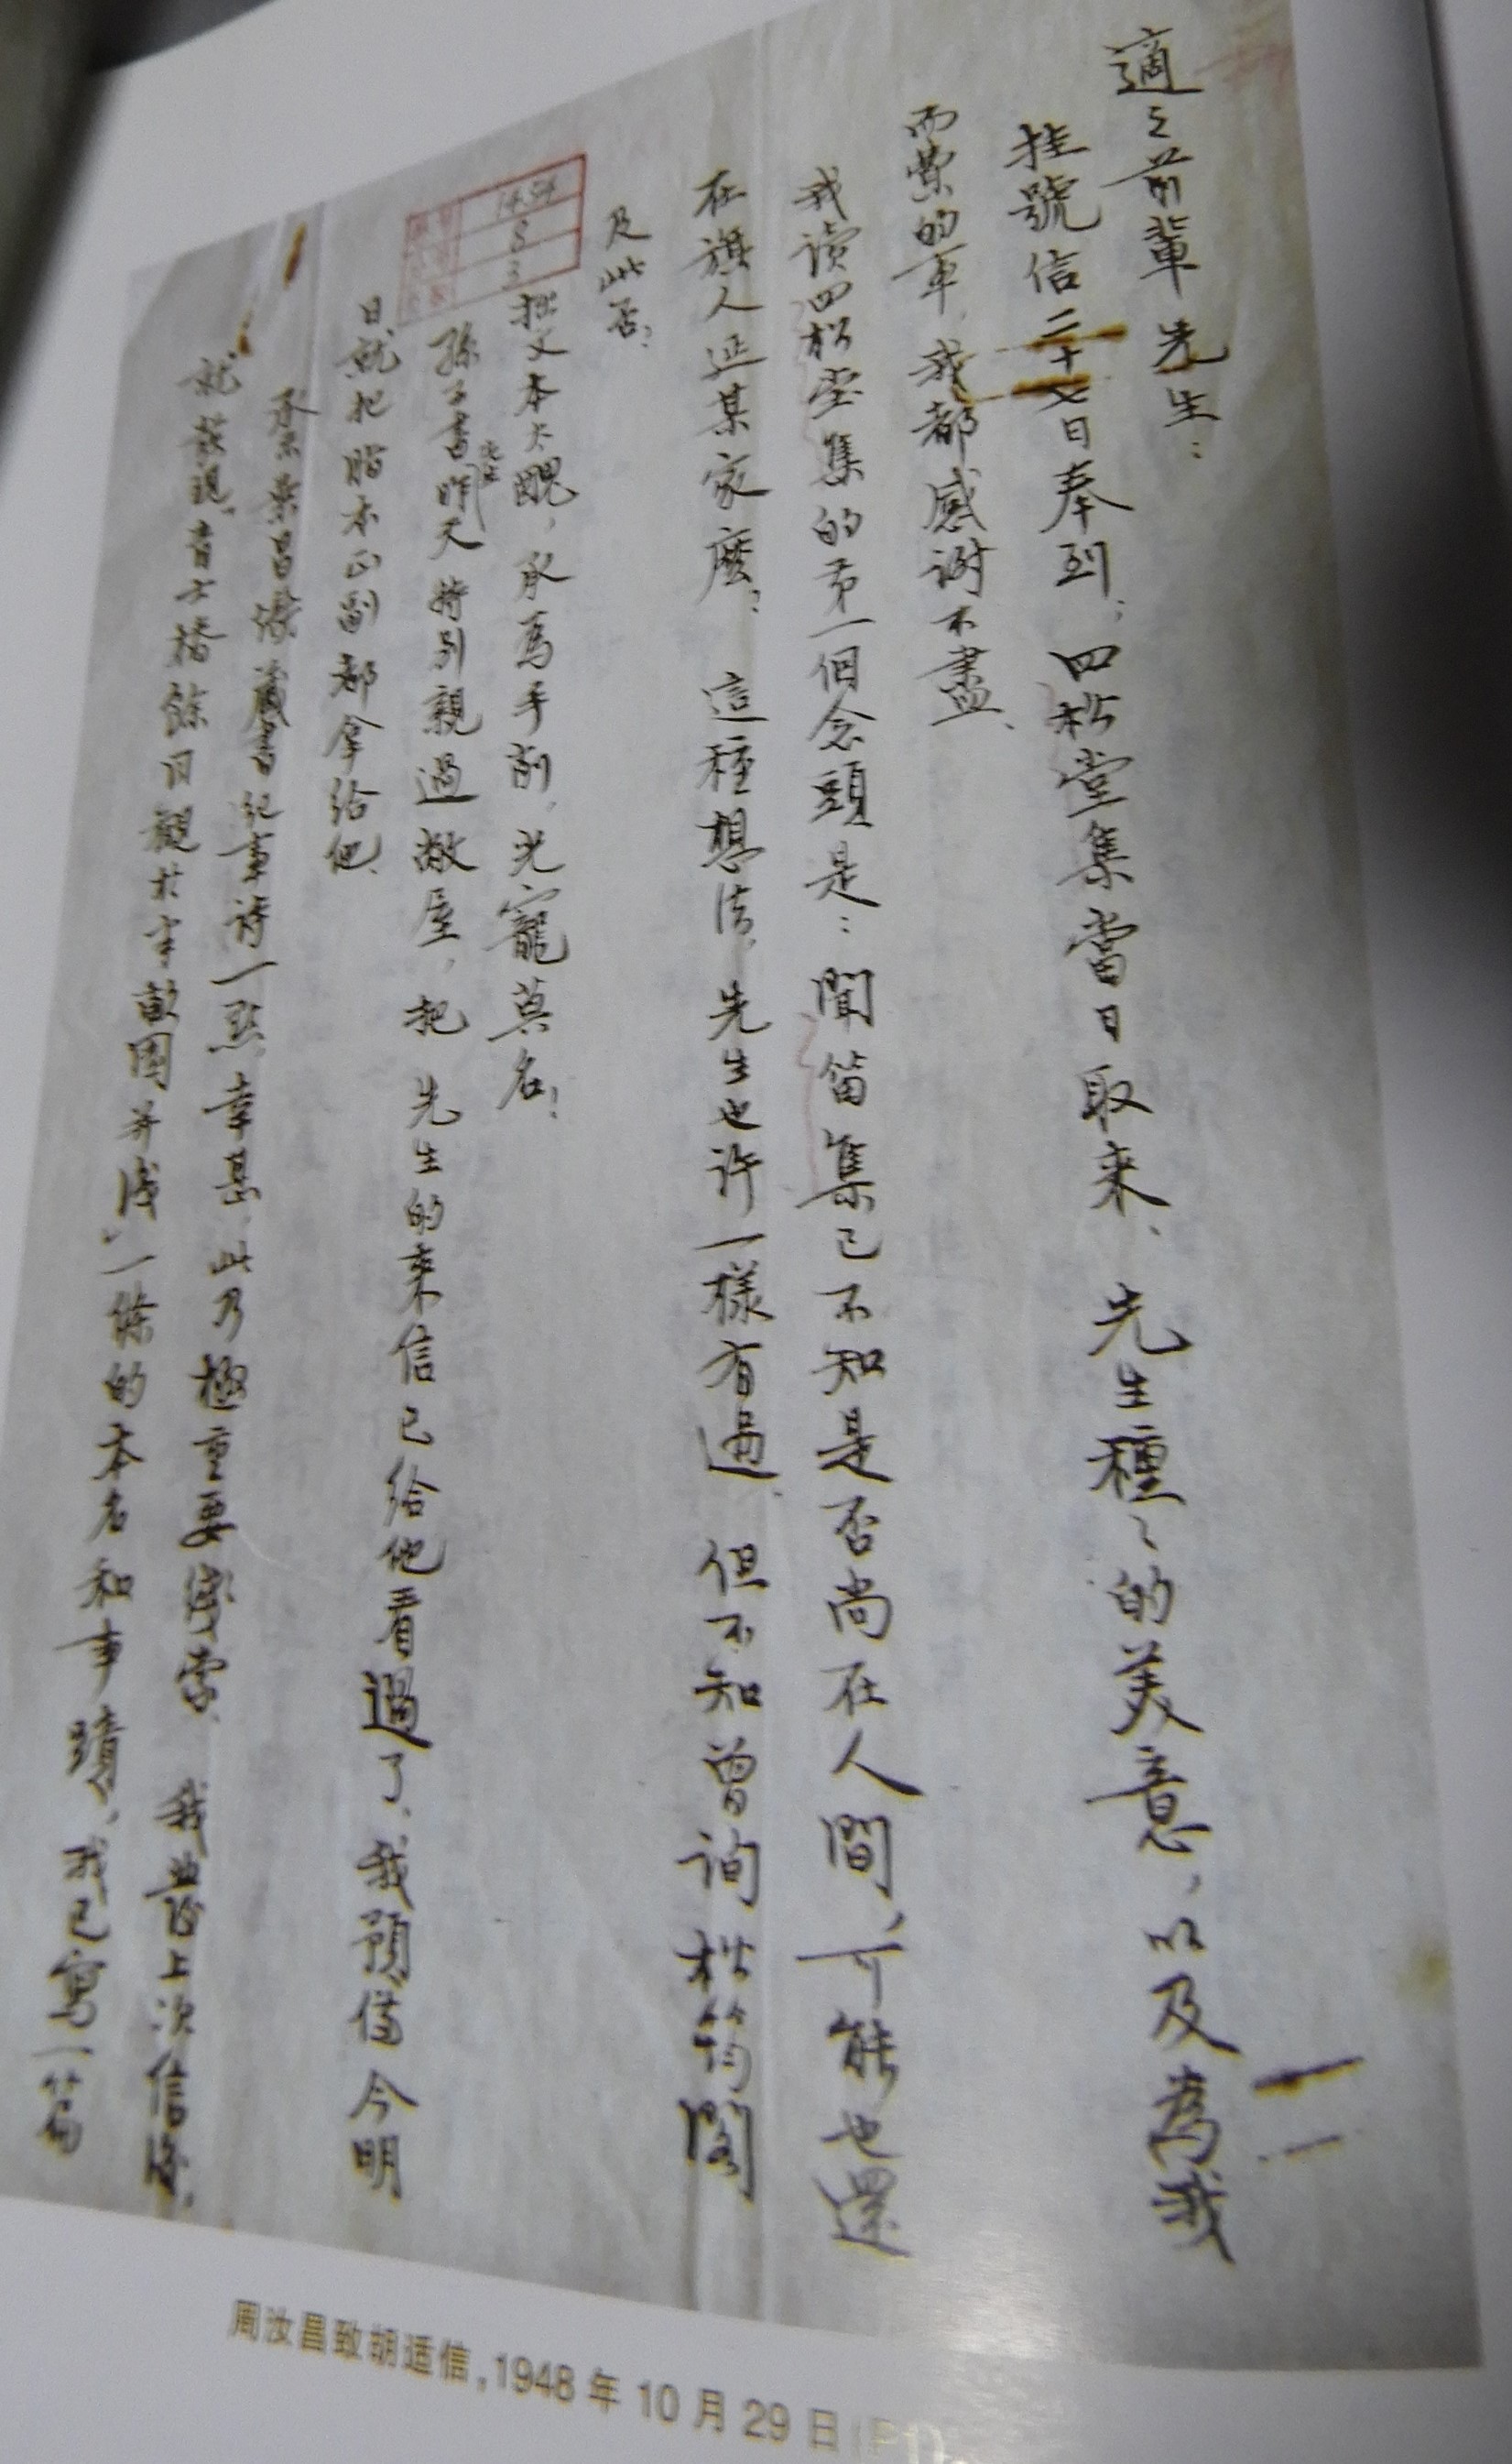 適之前輩先生：
挂號信二十七日奉到；四松堂集當日取來、先生種〻的美意，以及為我
而費的事，我都感謝不盡、
我读四松堂集的第一個念頭是：聞笛集已不知是否尚在人間、可能也還
在旗人延某家麽？這種想法、先生也许一樣有過、但不知曾询松筠閣
及此否？
拙文本太醜，承為手削，光寵莫名！
孫子書先生昨天特别親過敝屋，把先生的来信已给他看過了、我預備今明
日就把脂本正副都拿给他、
承示葉昌熾藏書紀事诗一點、幸甚、此乃極重要 我 上次信後、
就發現 一條的本者和事蹟、我已寫一篇
1454
8
3
周汝昌致胡适信,1948年10月29日(P1)